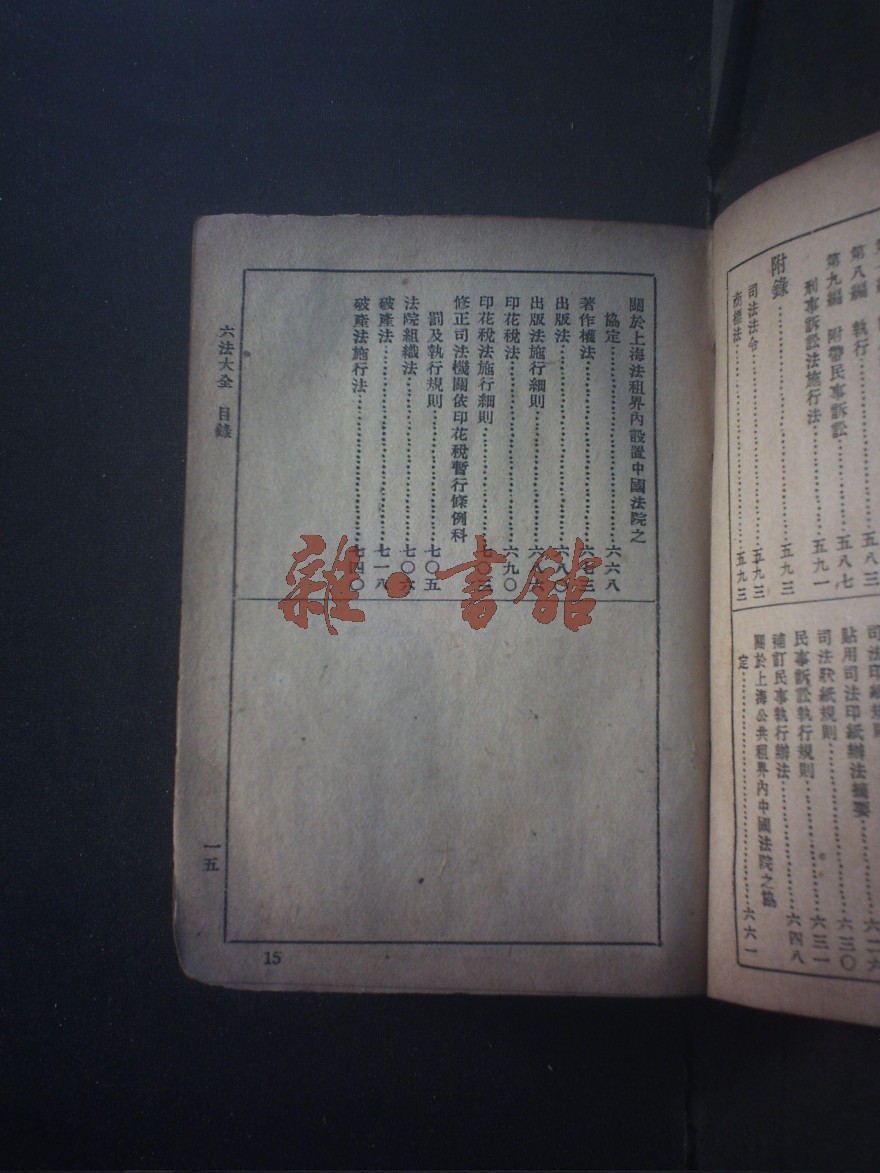 第八編　執行……五八三
第九編　附帶民事訴訟……五八七
刑事訴訟法施行法……五九一
附錄……五九三
司法法令……五九三
商標法……五九三
貼用司法印紙辦法摘要……六三〇
司法狀紙規則……六三一
民事訴訟執行規則……六四八
補訂民事執行辦法
關於上海公共租界內中國法院之協
定……六六一
關於上海法租界內設置中國法院之
協定……六六八
著作權法……六七三
出版法……六八〇
出版法施行細則……六八六
印花稅法……六九〇
印花稅法施行細則……七〇三
修正司法機關依印花稅暫行條例科
罰及執行規則……七〇五
法院組織法……七〇六
破產法……七一八
破產法施行法……七四〇
六法大全　目錄
一五
15
雜·書館